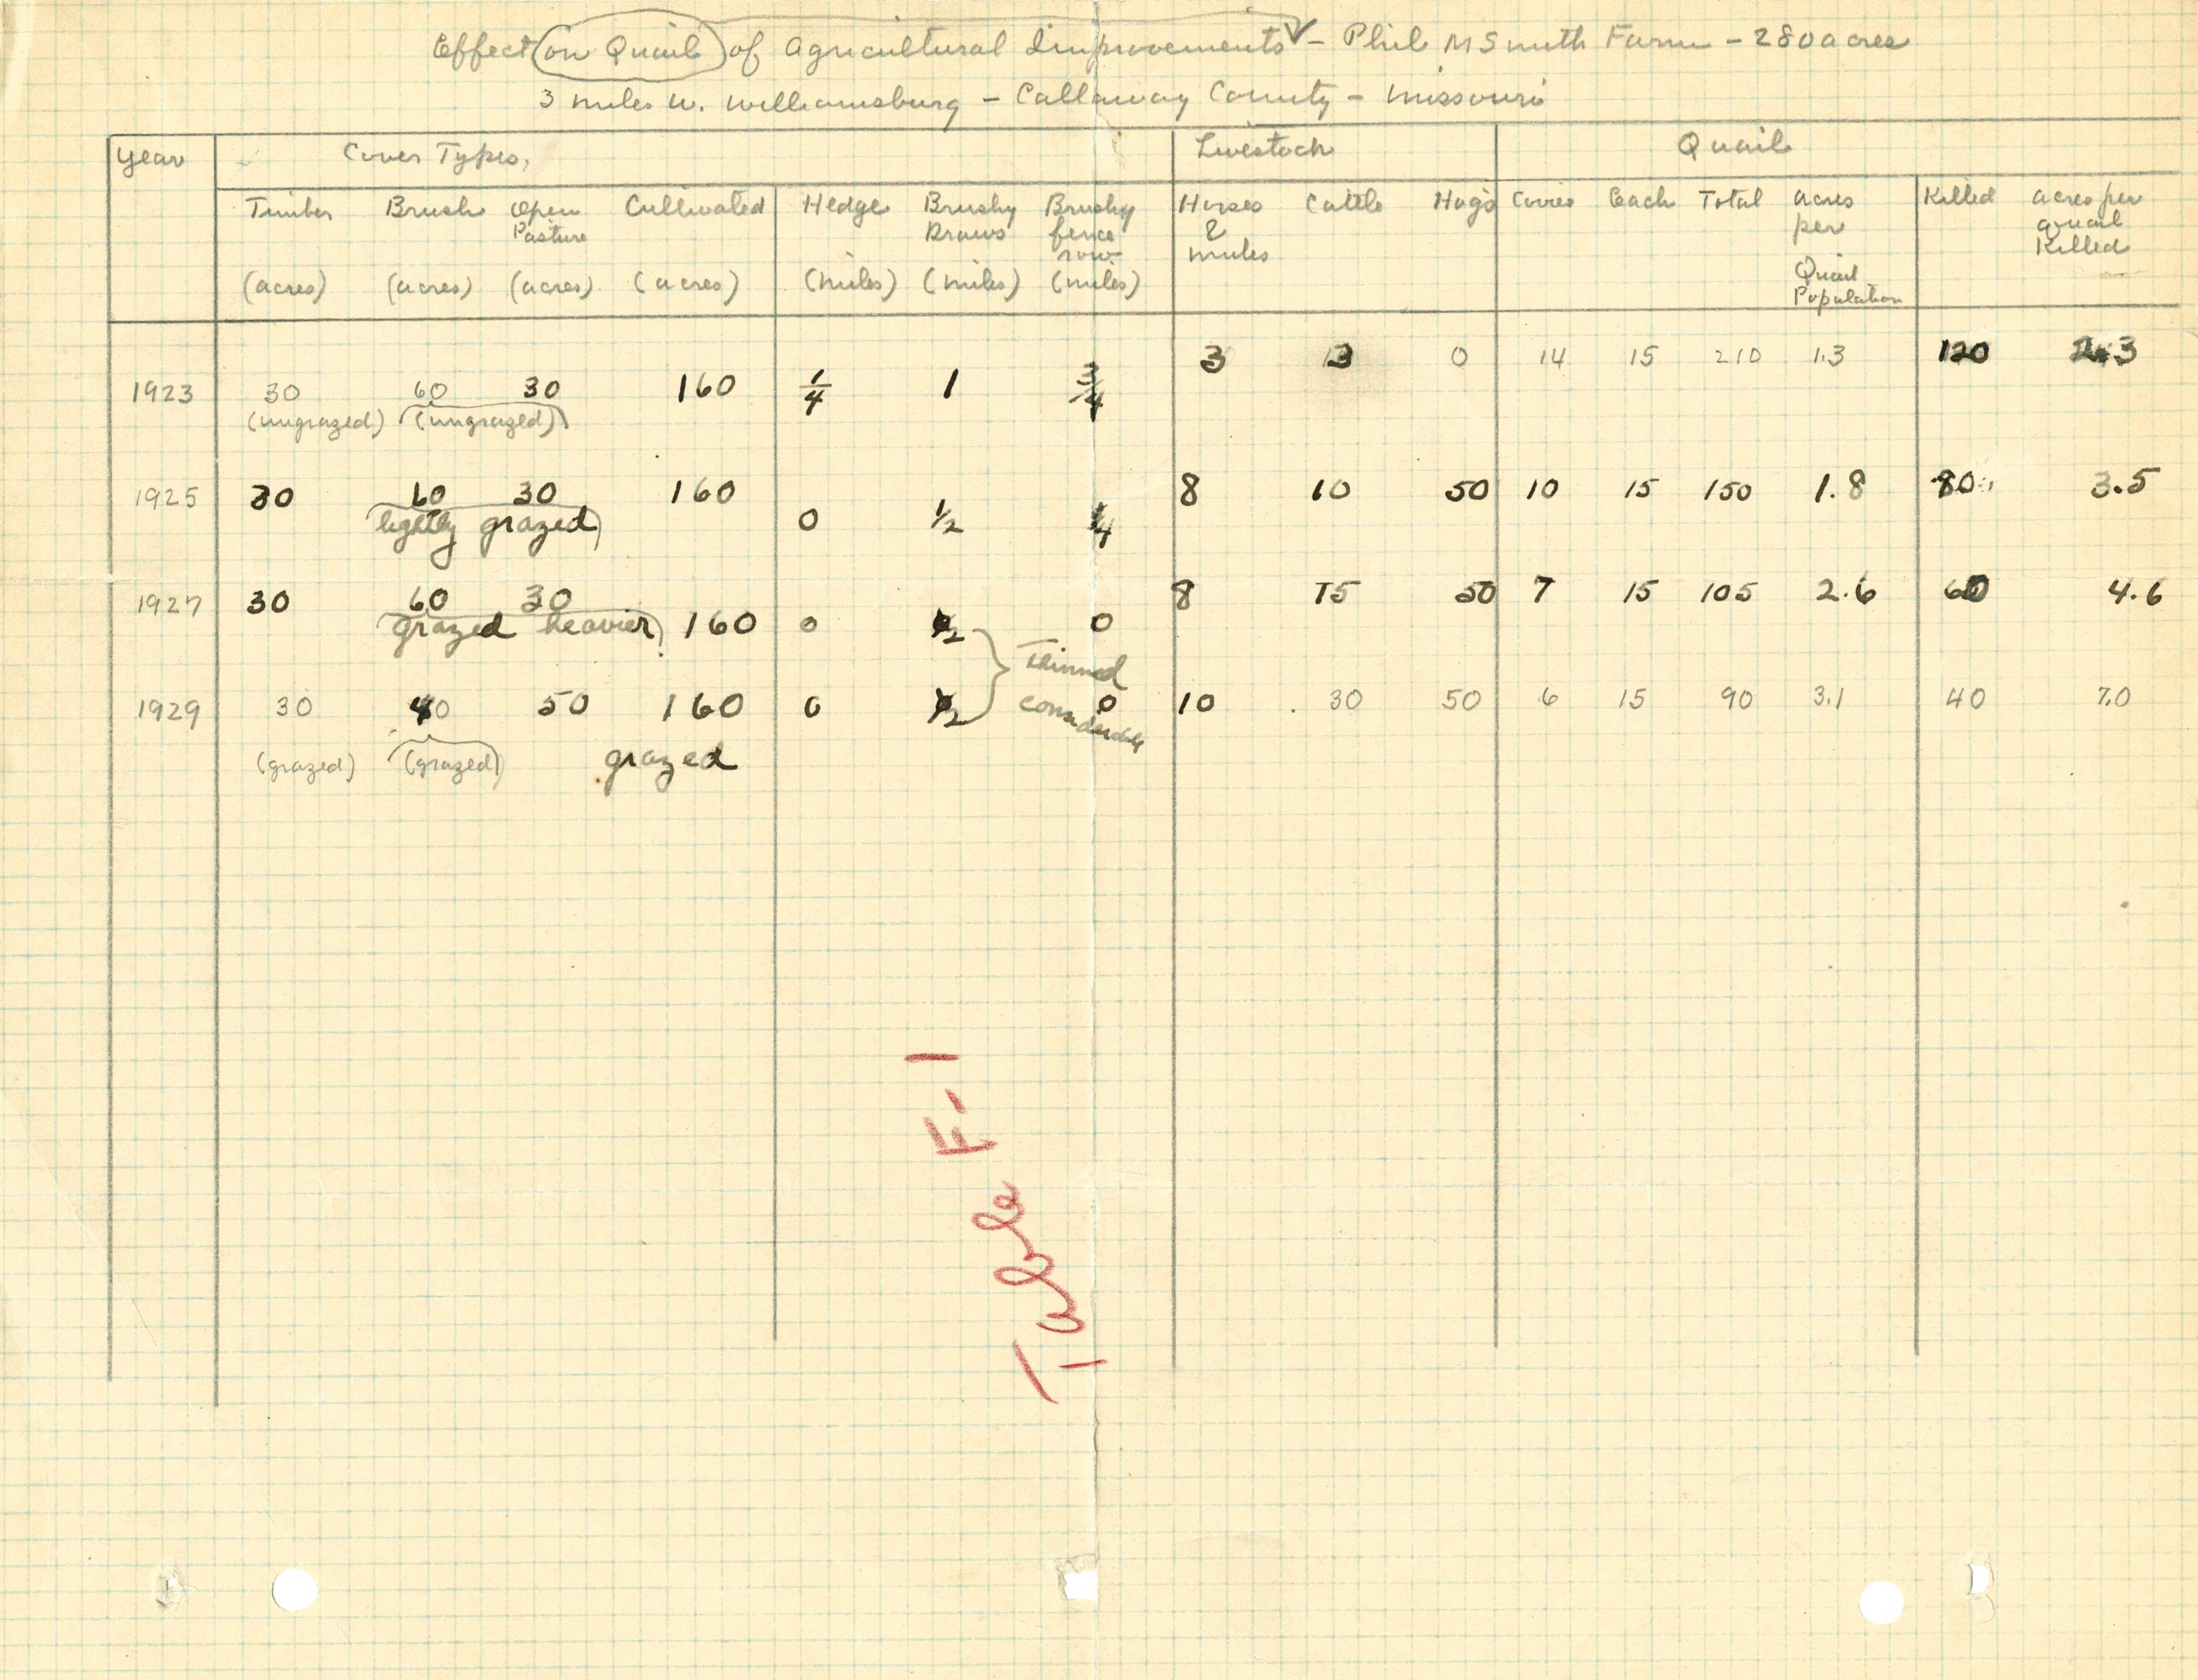 Effect on Quail of Agricultural Improvements - Phil M Smith Farm - 280 acres
3 miles W. Williamsburg - Callaway County - Missouri
Year Cover Types, Livestock Quail
Timber Brush Open Cultivated Hedge Brushy Brushy Horses Cattle Hogs Covies Each Total Acres Killed Acres per
Pasture Draws fence & per quail
row mules Killed
(acres) (acres) (acres) (acres) (miles) (miles) (miles) Quail
Population
3 3 0 14 15 210 1.3 120 2.3
1923 30 60 30 160 1/4 1 3/4
(ungrazed) (ungrazed)
1925 30 60 30 160 8 10 50 10 15 150 1.8 80 3.5
lightly grazed 0 1/2 1/4
1927 30 60 30 8 15 50 7 15 105 2.6 60 4.6
grazed heavier 160 0 1/2 0
Thinned
1929 30 40 50 160 0 1/2 0 10 30 50 6 15 90 3.1 40 7.0
considerable
(grazed) (grazed) grazed
Table F-1